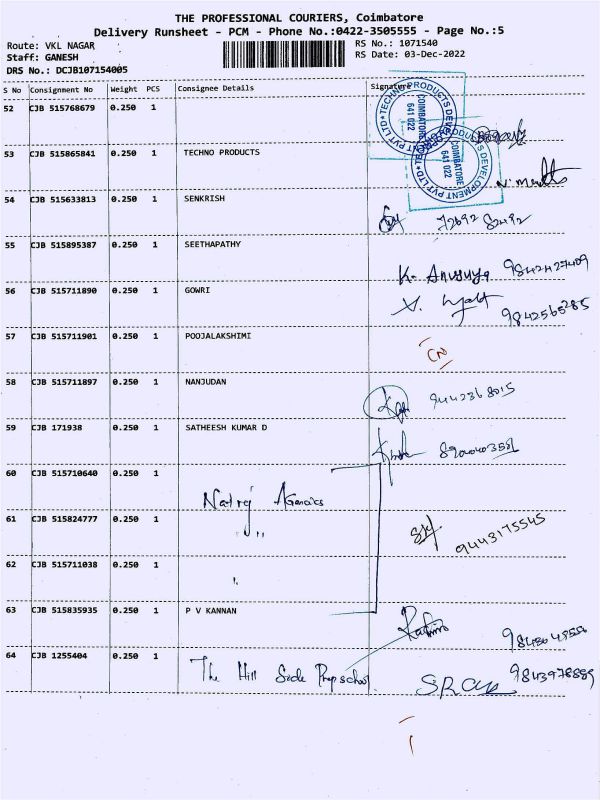 THE PROFESSIONAL COURIERS, Coimbatore
Delivery Runsheet - PCM - Phone No.:0422-3505555 - Page No.:5
Route: VKL NAGAR
RS No.: 1071540
Staff: GANESH
RS Date: 03-Dec-2022
DRS No.: DCJB107154005
S No Consignment No Weight PCS Consignee Details Signature
52 CJB 515768679 0.250 1
TECHNO PRODUCTS DEVELOPMENT PVT LTD
COIMBATORE 641 022
TECHNO PRODUCTS DEVELOPMENT PVT LTD
COIMBATORE 641 022
53 CJB 515865841 0.250 1 TECHNO PRODUCTS
54 CJB 515633813 0.250 1 SENKRISH
72692 82492
55 CJB 515895387 0.250 1 SEETHAPATHY
K. Anusuya 9842427409
56 CJB 515711890 0.250 1 GOWRI
9842565285
57 CJB 515711901 0.250 1 POOJALAKSHIMI
CN
58 CJB 515711897 0.250 1 NANJUDAN
9442368015
59 CJB 171938 0.250 1 SATHEESH KUMAR D
60 CJB 515710640 0.250 1
Natraj Agencies
61 CJB 515824777 0.250 1
" "
9443175545
62 CJB 515711038 0.250 1
"
63 CJB 515835935 0.250 1 P V KANNAN
64 CJB 1255404 0.250 1 The Hill Side Prep school
9843978889